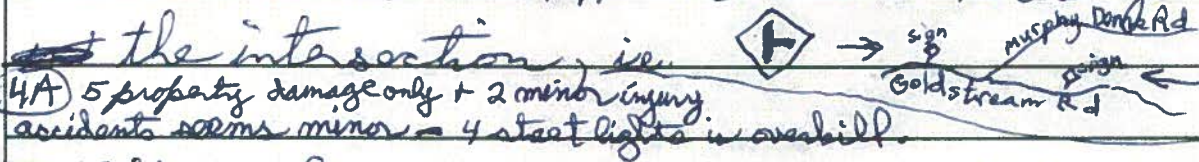 the intersection, ie.
sign
Murphy Dome Rd
Goldstream Rd
sign
4A) 5 property damage only + 2 minor injury
accidents seems minor - 4 street lights is overkill.